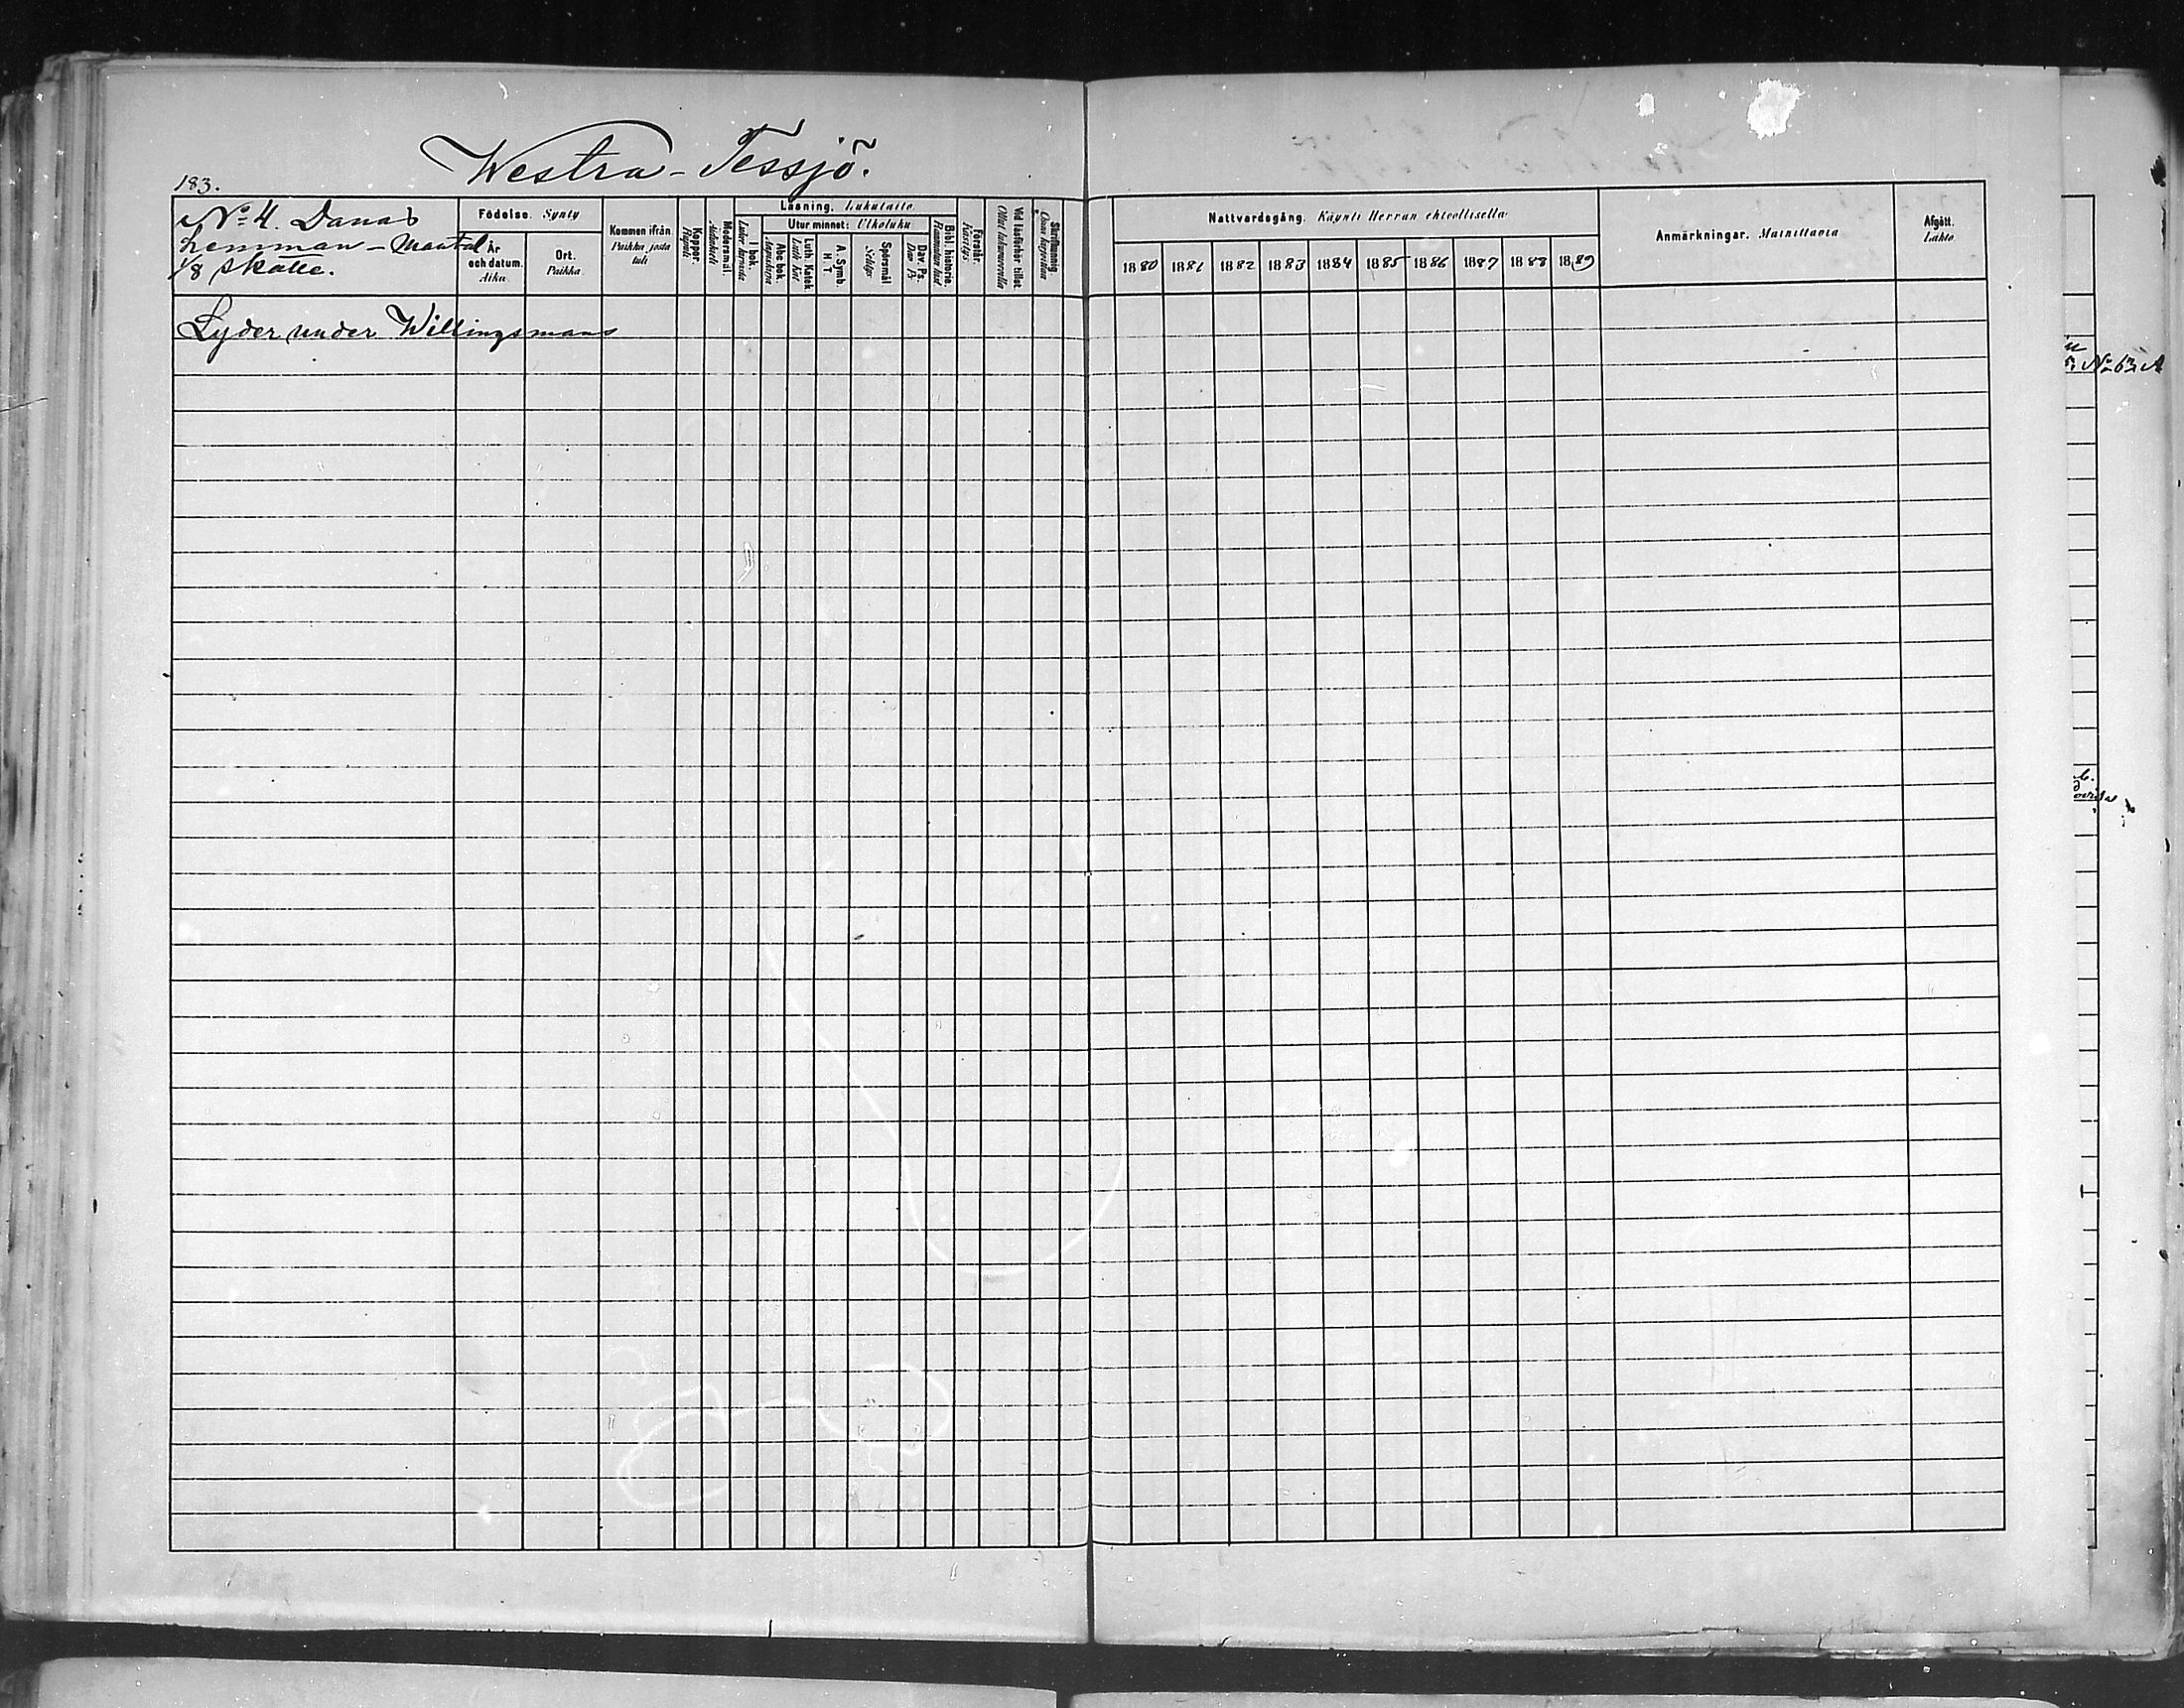 Westra-Tessjö.
183.
No 4. Danas
hemman - Mantal
1/8 Skatte.
Födelse. Synty
År och datum. Aika.
Ort. Paikka.
Kommen ifrån. Paikka, josta tuli
Koppor. Rupuli
Modersmål. Äidinkieli
Läsning. Lukutaito.
I bok.
Utur minnet: Ulkoluku
Abc bok.
Luth. Katek.
A. Symb. H. T.
Spörsmål
Dav. Ps.
Bibl. historie.
Förstår. Käsitys
Vid läsförhör tillst.
Skriftunnig.
Nattvardsgång. Käynti Herran ehtoollisella
1880 1881 1882 1883 1884 1885 1886 1887 1888 1889
Anmärkningar. Muistettavia
Afgått. Lähtö.
Lyder under Willingsmans
No 63 A